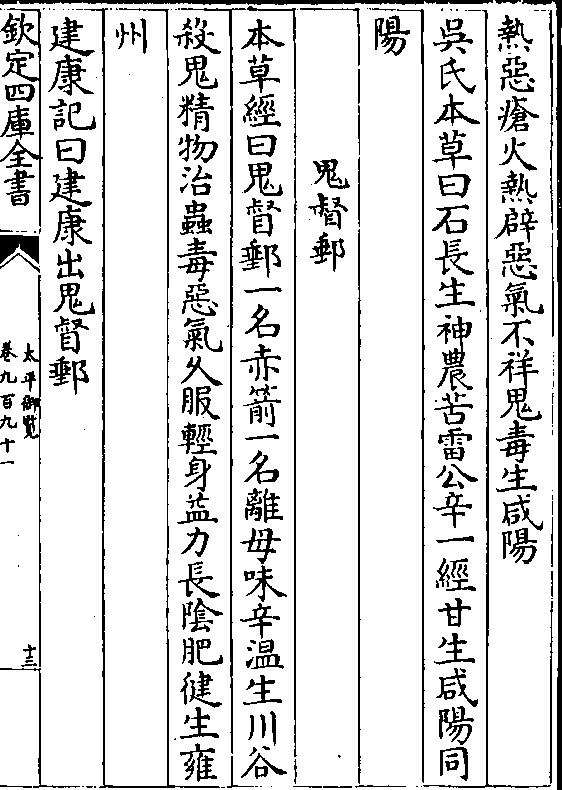 熱惡瘡火熱辟惡氣不祥鬼毒生咸陽
吳氏本草曰石長生神農苦雷公辛一經甘生咸陽同
陽
鬼督郵
本草經曰鬼督郵一名赤箭一名離母味辛温生川谷
殺鬼精物治蟲毒惡氣久服輕身益力長隂肥健生雍
州
建康記曰建康出鬼督郵
欽定四庫全書
太平御覧
卷九百九十一
十三